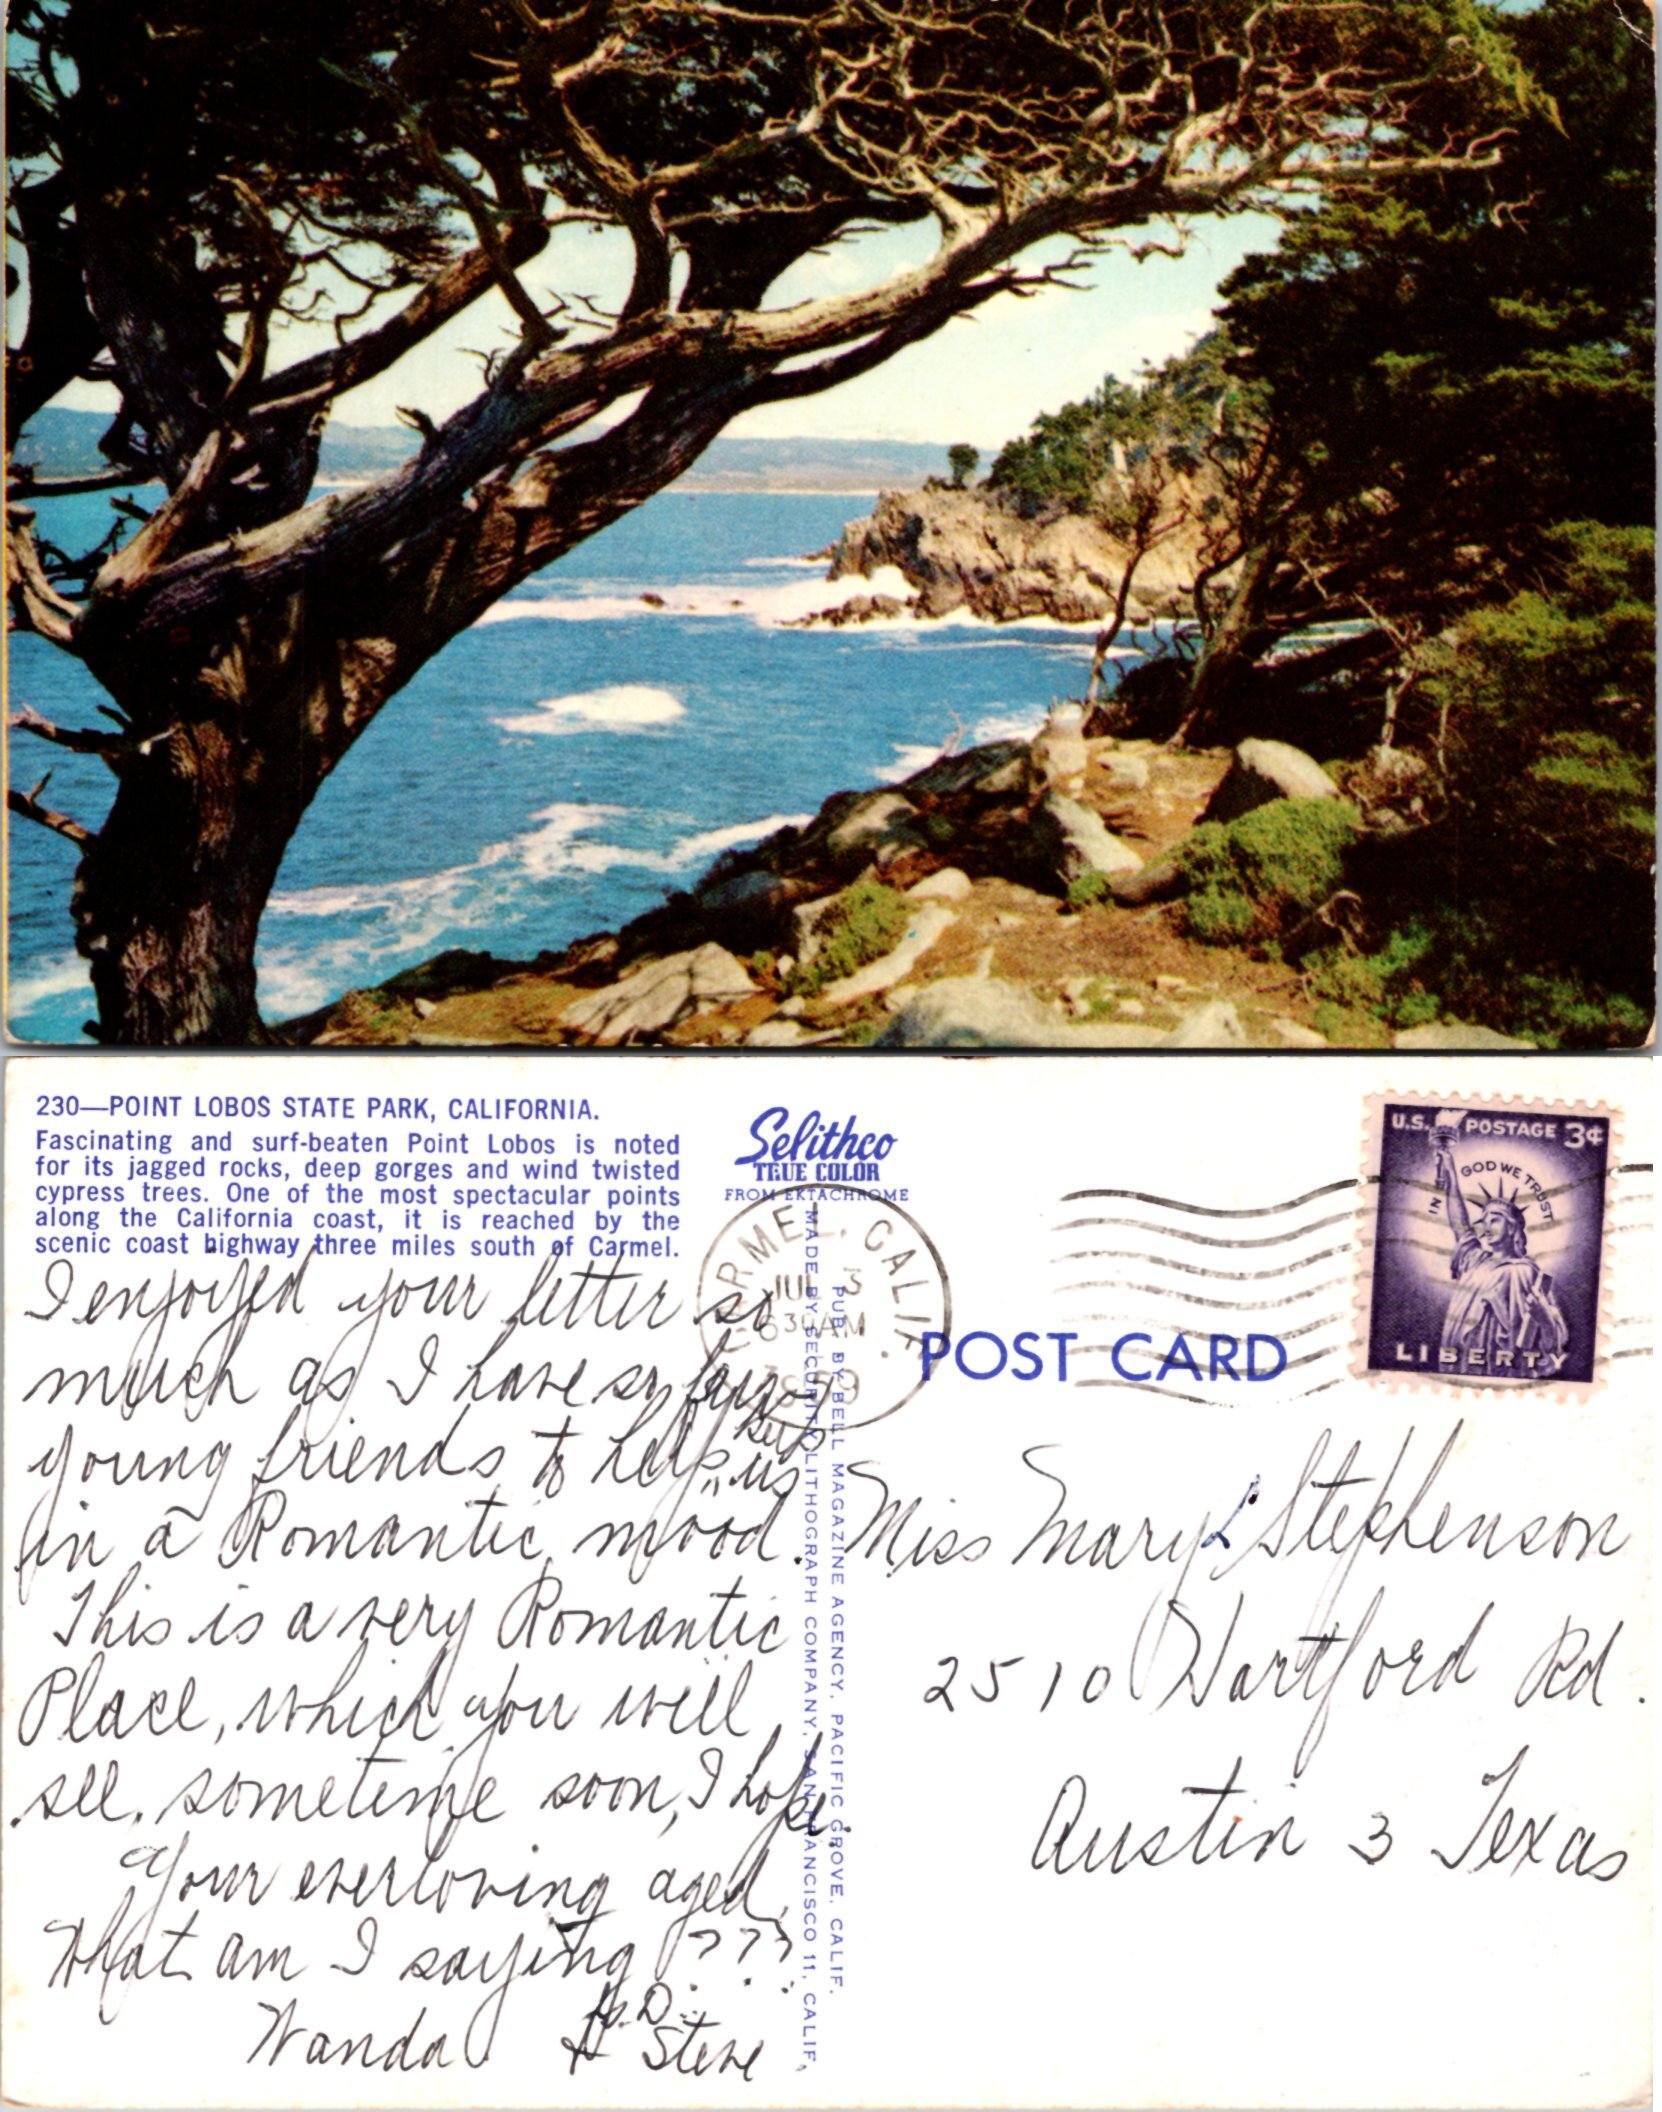 230—POINT LOBOS STATE PARK, CALIFORNIA.
Fascinating and surf-beaten Point Lobos is noted
for its jagged rocks, deep gorges and wind twisted
cypress trees. One of the most spectacular points
along the California coast, it is reached by the
scenic coast highway three miles south of Carmel.
Selithco
TRUE COLOR
FROM EKTACHROME
CARMEL, CALIF.
JUL
630AM
U.S. POSTAGE 3¢
IN GOD WE TRUST
LIBERTY
POST CARD
PUB. BY BELL MAGAZINE AGENCY, PACIFIC GROVE, CALIF.
MADE BY SECURITY LITHOGRAPH COMPANY, SAN FRANCISCO 11, CALIF.
I enjoyed your letter so
much as I have so few
young friends to help keep us
in a Romantic mood.
This is a very Romantic
Place, which you will
see, sometime soon, I hope.
Your everloving aged,
What am I saying ???
Wanda
Steve
Miss Mary L Stephenson
2510 Hartford Rd.
Austin 3 Texas